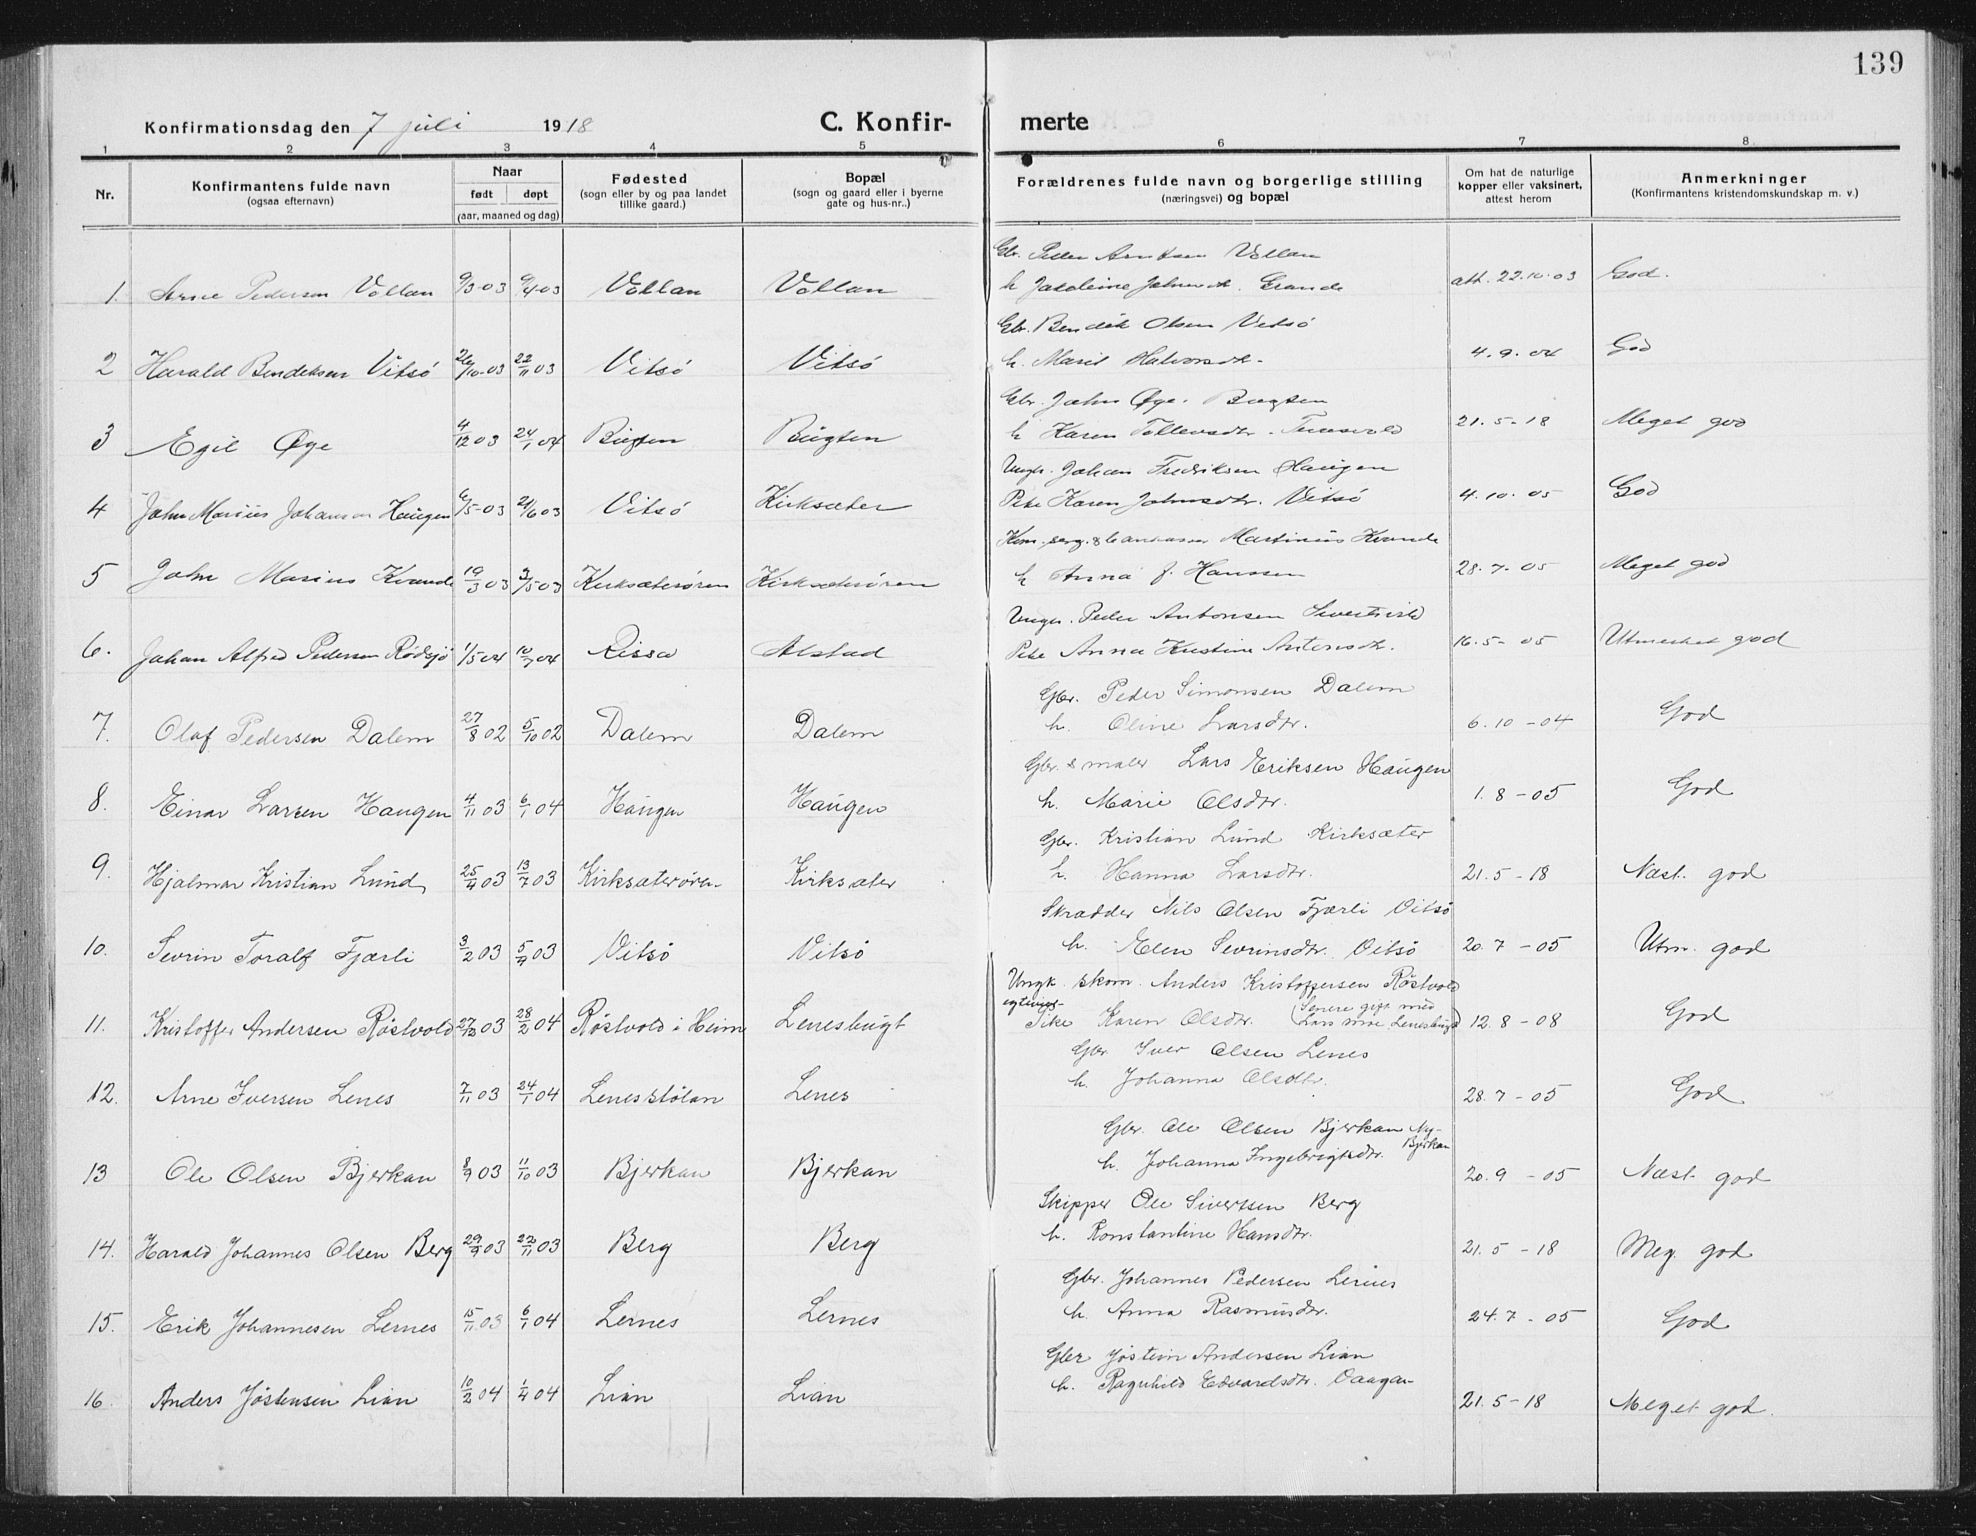 139
Konfirmationsdag den 7 juli 1918 C. Konfirmerte
1 2 3 4 5 6 7 8
Nr.
Konfirmantens fulde navn
(ogsaa efternavn)
Naar
født døpt
(aar, maaned og dag)
Fødested
(sogn eller by og paa landet
tillike gaard.)
Bopæl
(sogn og gaard eller i byerne
gate og hus-nr..)
Forældrenes fulde navn og borgerlige stilling
(næringsvei) og bopæl
Om hat de naturlige
kopper eller vaksinert,
attest herom
Anmerkninger
(Konfirmantens kristendomskundskap m. v.)
Gbr. Peder Arntsen Vollan
1. Arne Pedersen Vollan 9/3-03 9/4-03 Vollan Vollan h. Grande att. 22.10.03 God.
Gbr. Bendik Olsen Vitsø
2 Harald Bendiksen Vitsø 26/10-03 22/11 03 Vitsø Vitsø h. Marit Halvorsdtr. 4.9.04 God
Gbr. John Øye. Bugten
3 Egil Øye 4/12 03 24/1 04 Bugten Bugten h. Karen Tollevsdtr. 21.5-18 Meget god
Ungk. Johan Fredriksen Haugen
4 John Marius Johansen Haugen 6/5-03 21/6 03 Vitsø Kirksæter Pike Karen Johnsdtr. Vitsø 4.10.05 God
Martinius Kvande
5 John Marius Kvande 19/3 03 3/5 03 Kirksæterøren Kirksæterøren h. Anna f. Hanssen 28.7.05 Meget god
Ungk. Peder Antonsen
6. Johan Alfred Pedersen Rødsjø 1/5 04 10/7 04 Rissa Alstad Pike Anna Kristine Antonsdtr. 16.5-05 Utmerket god
Gbr. Peder Simonsen Dalem
7. Olaf Pedersen Dalem 27/8 02 5/10 02 Dalem Dalem h. Oline Larsdtr. 6.10-04 God
Gbr. & maler Lars Eriksen Haugen
8. Einar Larsen Haugen 4/11 03 6/1 04 Haugen Haugen h. Marie Olsdtr. 1.8-05 God
Gbr. Kristian Lund Kirksæter
9. Hjalmar Kristian Lund 25/4 03 13/7 03 Kirksæterøren Kirksæter h. Hanna Larsdtr. 21.5-18 Næst. god
Skrædder Nils Olsen Fjærli Vitsø
10. Sevrin Toralf Fjærli 3/2 03 5/4 03 Vitsø Vitsø h. Elen Sevrinsdtr. Vitsø 20.7-05 Utm. god
Ungk. skom. Anders Kristoffersen Røstvold
11. Kristoffer Andersen Røstvold 27/12 03 28/2 04 Røstvold i Heim Lenesbugt Pike Karen Olsdtr. (Senere gift med Lars Moe, Lenesbugt) 12.8-08 God
Gbr. Iver Olsen Lenes
12. Arne Iversen Lenes 7/11 03 24/1 04 Lenesstølan Lenes h. Johanna Olsdtr. 28.7-05 God
Gbr. Ole Olsen Bjerkan Ny-Bjerkan
13 Ole Olsen Bjerkan 8/9 03 11/10 03 Bjerkan Bjerkan h. Johanna Ingebrigtsdtr. 20.9-05 Næst. god
Skipper Ole Sivertsen Berg
14. Harald Johannes Olsen Berg 29/9 03 22/11 03 Berg Berg h. Konstantine Hansdtr. 21.5-18 Meg. god
Gbr. Johannes Pedersen Lernes
15. Erik Johannesen Lernes 15/11 03 6/1 04 Lernes Lernes h. Anna Rasmusdtr. 24.7-05 God
Gbr Jøstein Andersen Lian
16. Anders Jøstensen Lian 10/2 04 1/4 04 Lian Lian h. Ragnhild Edvardsdtr. Vaagan 21.5-18 Meget god.